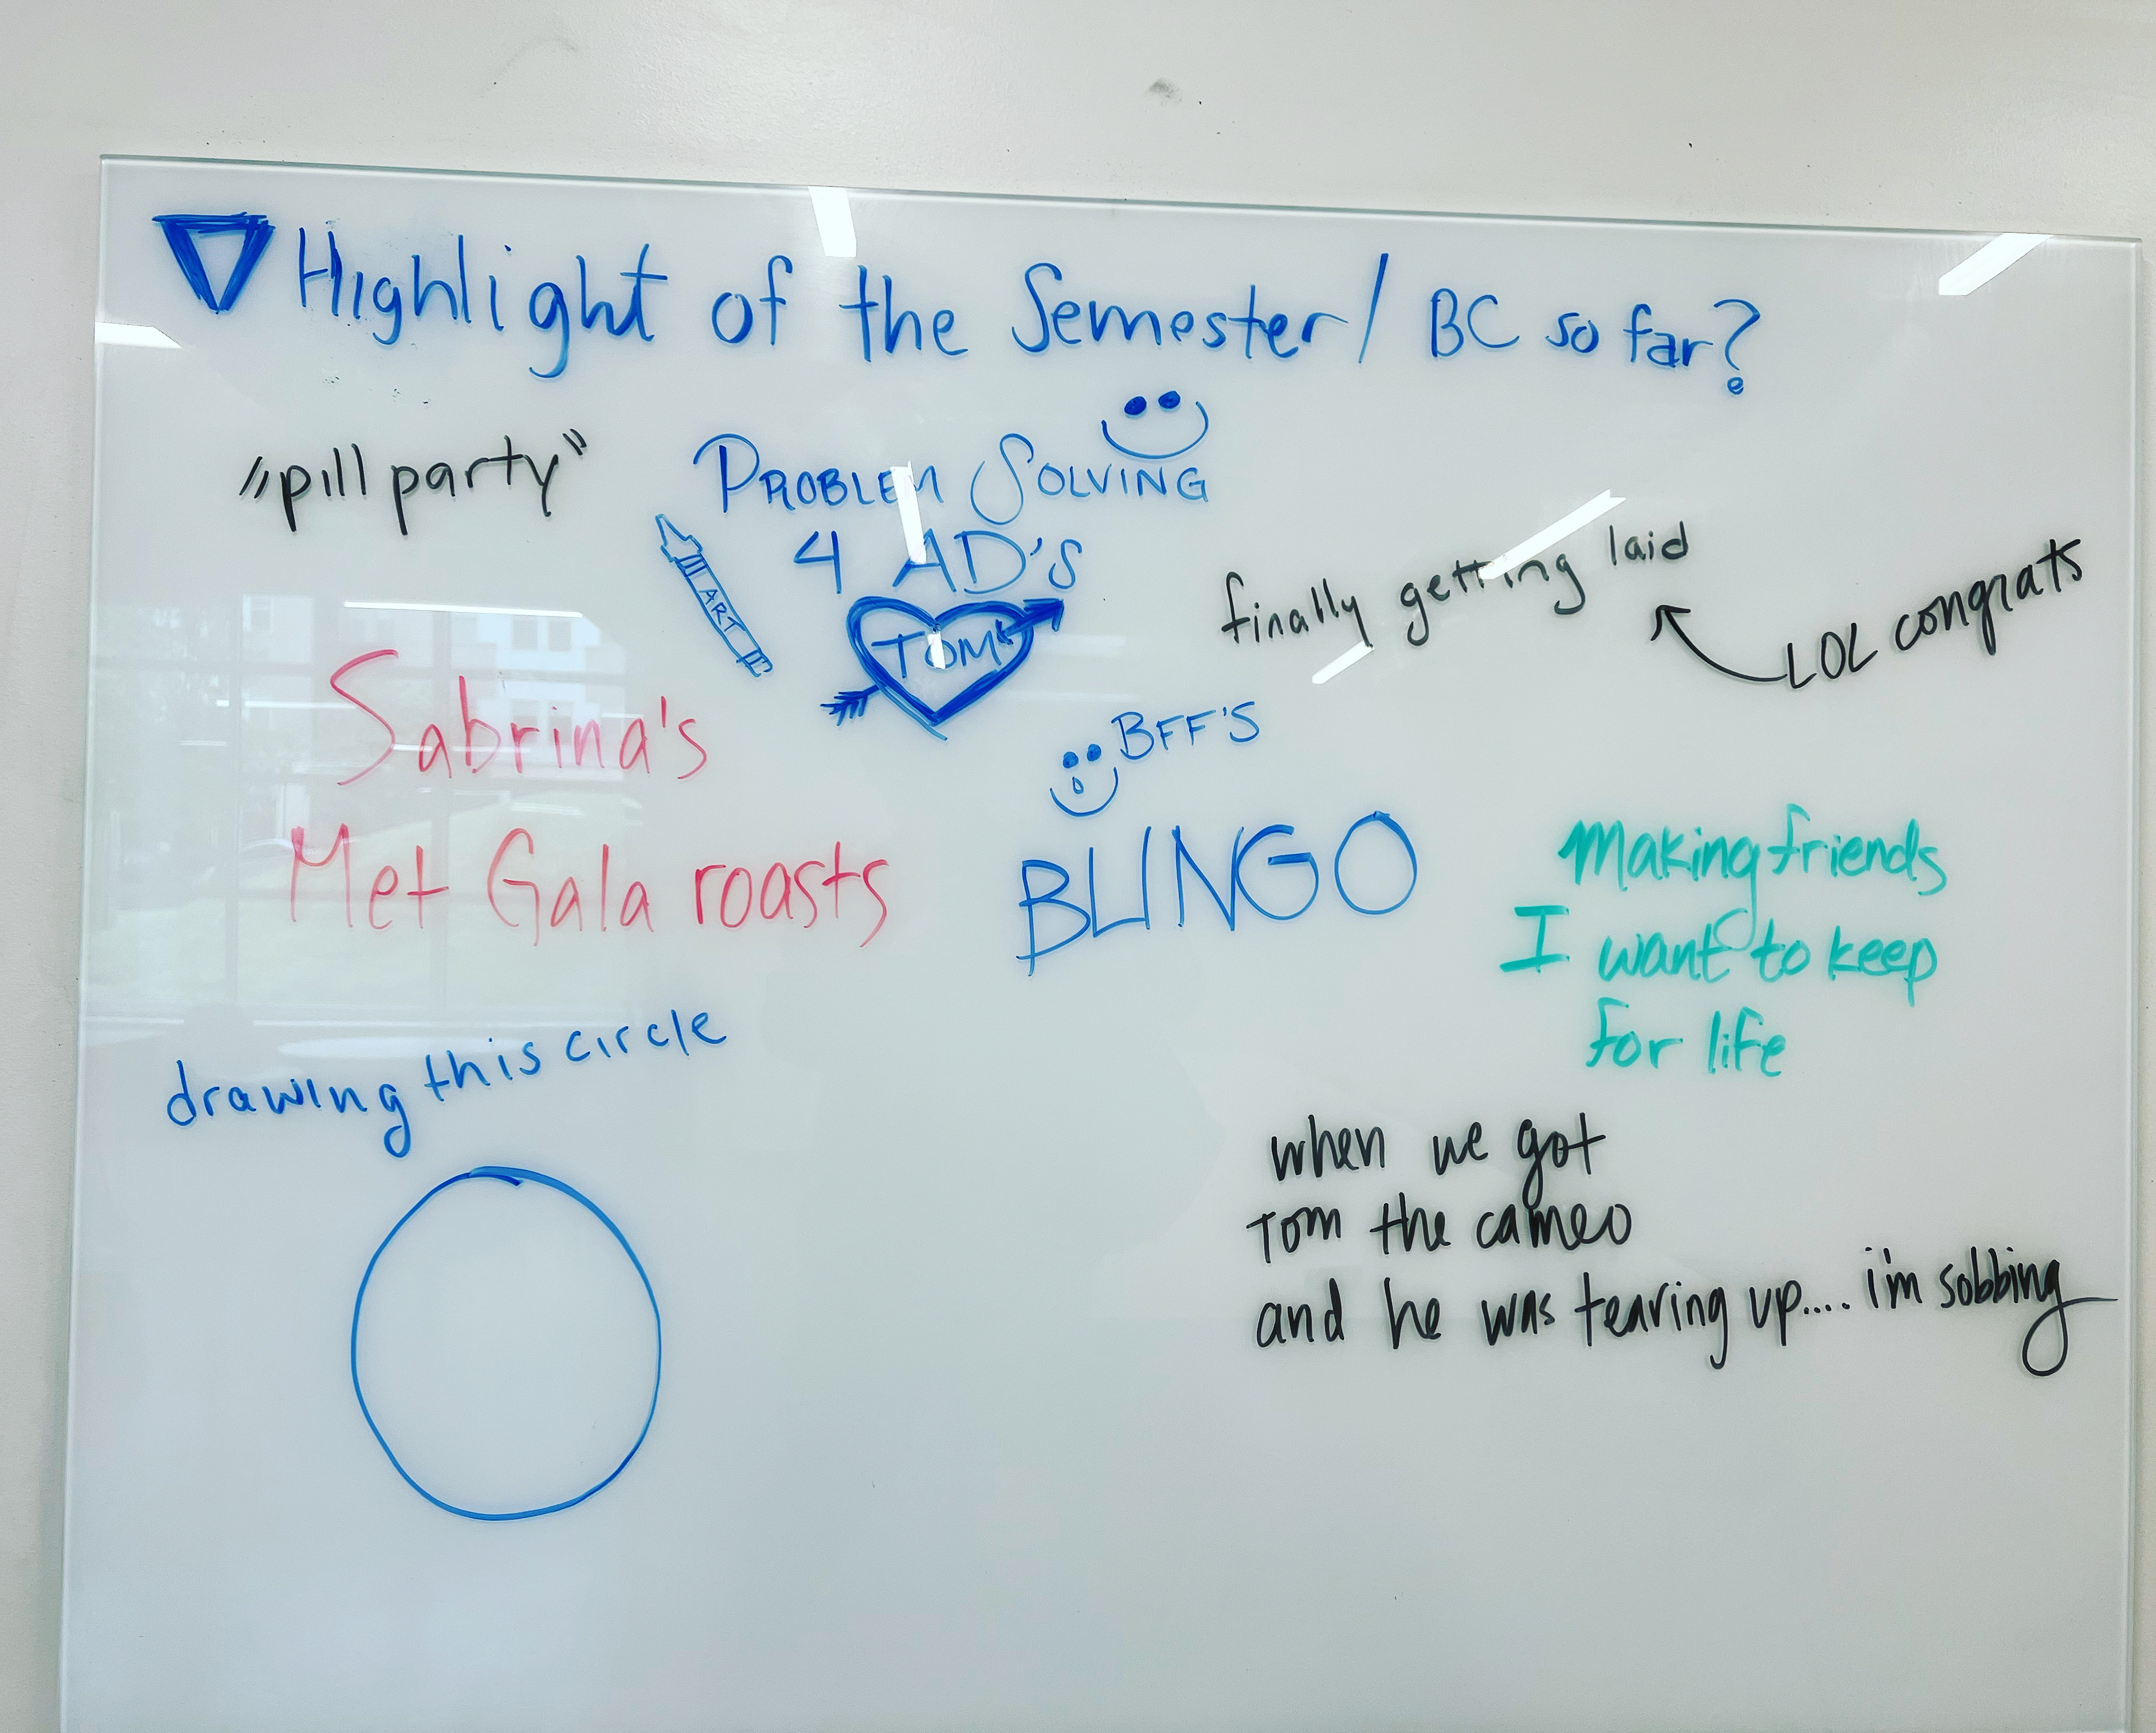 Highlight of the Semester/ BC so far?
"pill party"
PROBLEM SOLVING
4 AD'S
ART
TOM
finally getting laid
LOL congrats
Sabrina's
Met Gala roasts
BFF'S
BLINGO
Making friends
I want to keep
for life
drawing this circle
when we got
Tom the cameo
and he was tearing up.... i'm sobbing